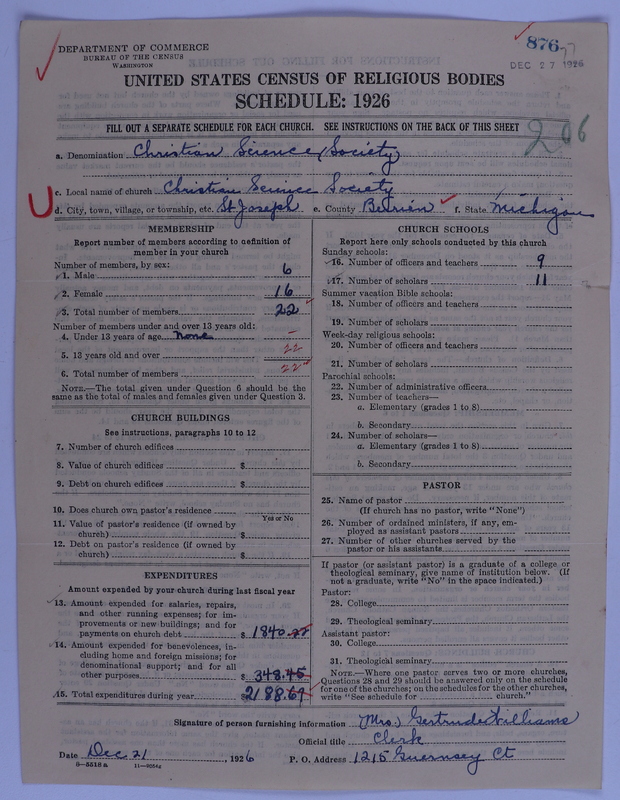 876-77
DEC 27 1926
DEPARTMENT OF COMMERCE
BUREAU OF THE CENSUS
WASHINGTON
UNITED STATES CENSUS OF RELIGIOUS BODIES
SCHEDULE: 1926
FILL OUT A SEPARATE SCHEDULE FOR EACH CHURCH. SEE INSTRUCTIONS ON THE BACK OF THIS SHEET
206
a. Denomination Christian Science (Society)
c. Local name of church Christian Science Society
U
d. City, town, village, or township, etc. St Joseph e. County Berrien f. State Michigan
MEMBERSHIP
Report number of members according to definition of
member in your church
Number of members, by sex:
1. Male 6
2. Female 16
3. Total number of members 22
Number of members under and over 13 years old:
4. Under 13 years of age none –
5. 13 years old and over 22
6. Total number of members 22
NOTE.—The total given under Question 6 should be the
same as the total of males and females given under Question 3.
CHURCH BUILDINGS
See instructions, paragraphs 10 to 12
7. Number of church edifices
8. Value of church edifices $
9. Debt on church edifices $
10. Does church own pastor's residence
Yes or No
11. Value of pastor's residence (if owned by
church) $
12. Debt on pastor's residence (if owned by
church) $
EXPENDITURES
Amount expended by your church during last fiscal year
13. Amount expended for salaries, repairs,
and other running expenses; for im-
provements or new buildings; and for
payments on church debt $ 1840.22
14. Amount expended for benevolences, in-
cluding home and foreign missions; for
denominational support; and for all
other purposes $ 348.45
15. Total expenditures during year $ 2188.67
CHURCH SCHOOLS
Report here only schools conducted by this church
Sunday schools:
16. Number of officers and teachers 9
17. Number of scholars 11
Summer vacation Bible schools:
18. Number of officers and teachers
19. Number of scholars
Week-day religious schools:
20. Number of officers and teachers
21. Number of scholars
Parochial schools:
22. Number of administrative officers
23. Number of teachers—
a. Elementary (grades 1 to 8)
b. Secondary
24. Number of scholars—
a. Elementary (grades 1 to 8)
b. Secondary
PASTOR
25. Name of pastor
(If church has no pastor, write "None")
26. Number of ordained ministers, if any, em-
ployed as assistant pastors
27. Number of other churches served by the
pastor or his assistants
If pastor (or assistant pastor) is a graduate of a college or
theological seminary, give name of institution below. (If
not a graduate, write "No" in the space indicated.)
Pastor:
28. College
29. Theological seminary
Assistant pastor:
30. College
31. Theological seminary
NOTE.—Where one pastor serves two or more churches,
Questions 28 and 29 should be answered only on the schedule
for one of the churches; on the schedules for the other churches,
write "See schedule for church."
Signature of person furnishing information Mrs. Gertrude Williams
Official title Clerk
Date Dec 21, 1926 P. O. Address 1215 Guernsey Ct
8—5518 a 11—8054a